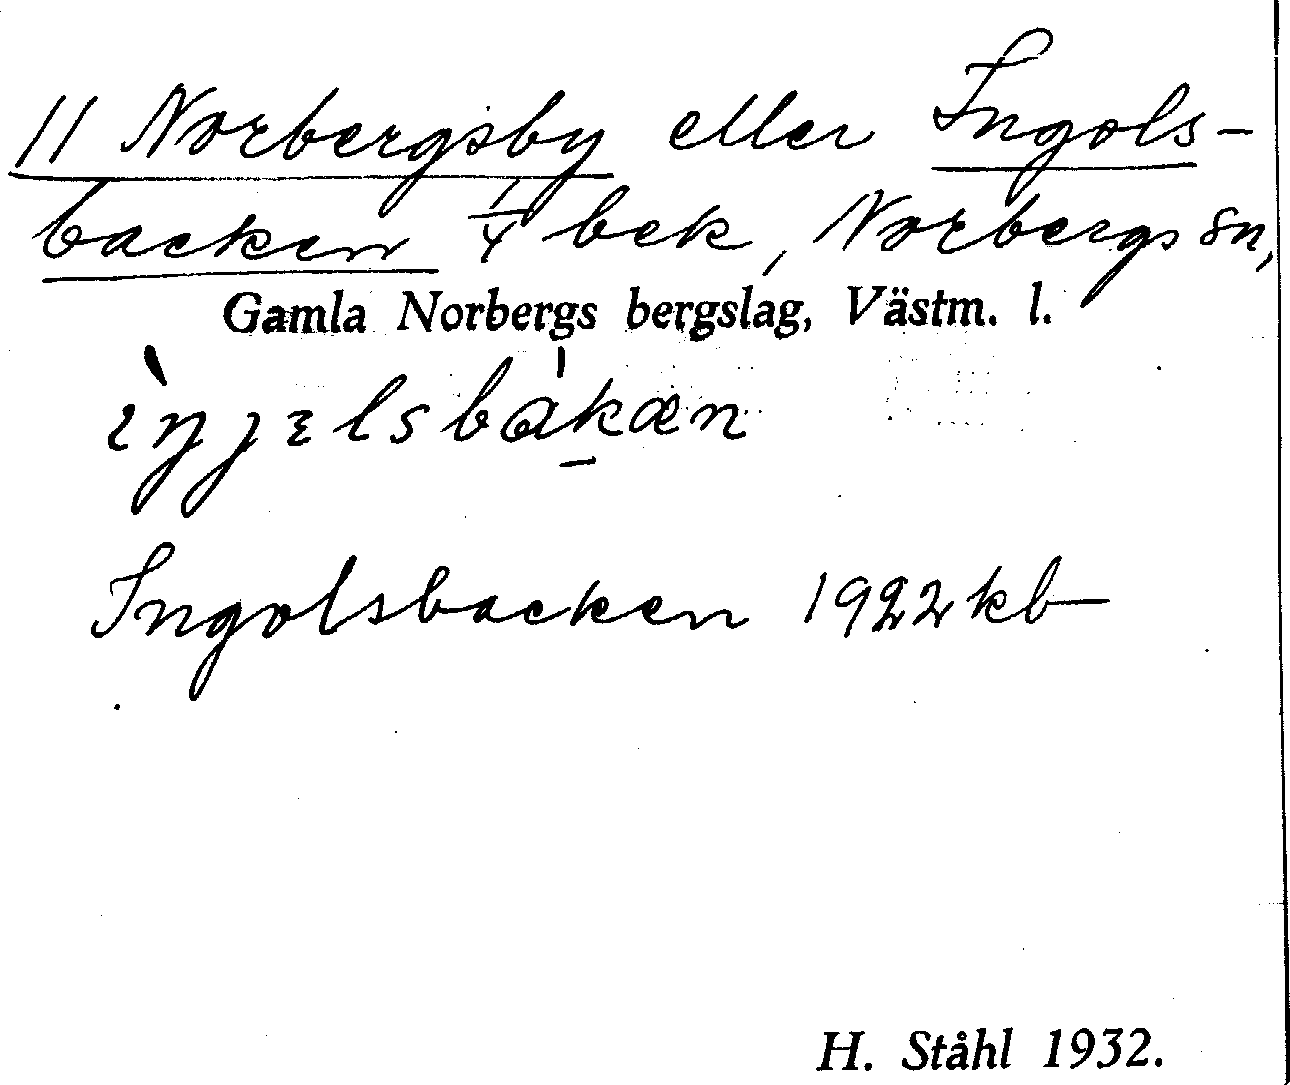 11 Norbergsby eller Ingols-
backen 1/4 bek, Norbergs sn,
Gamla Norbergs bergslag, Västm. l.
Ingolsbacken 1922 kb
H. Ståhl 1932.